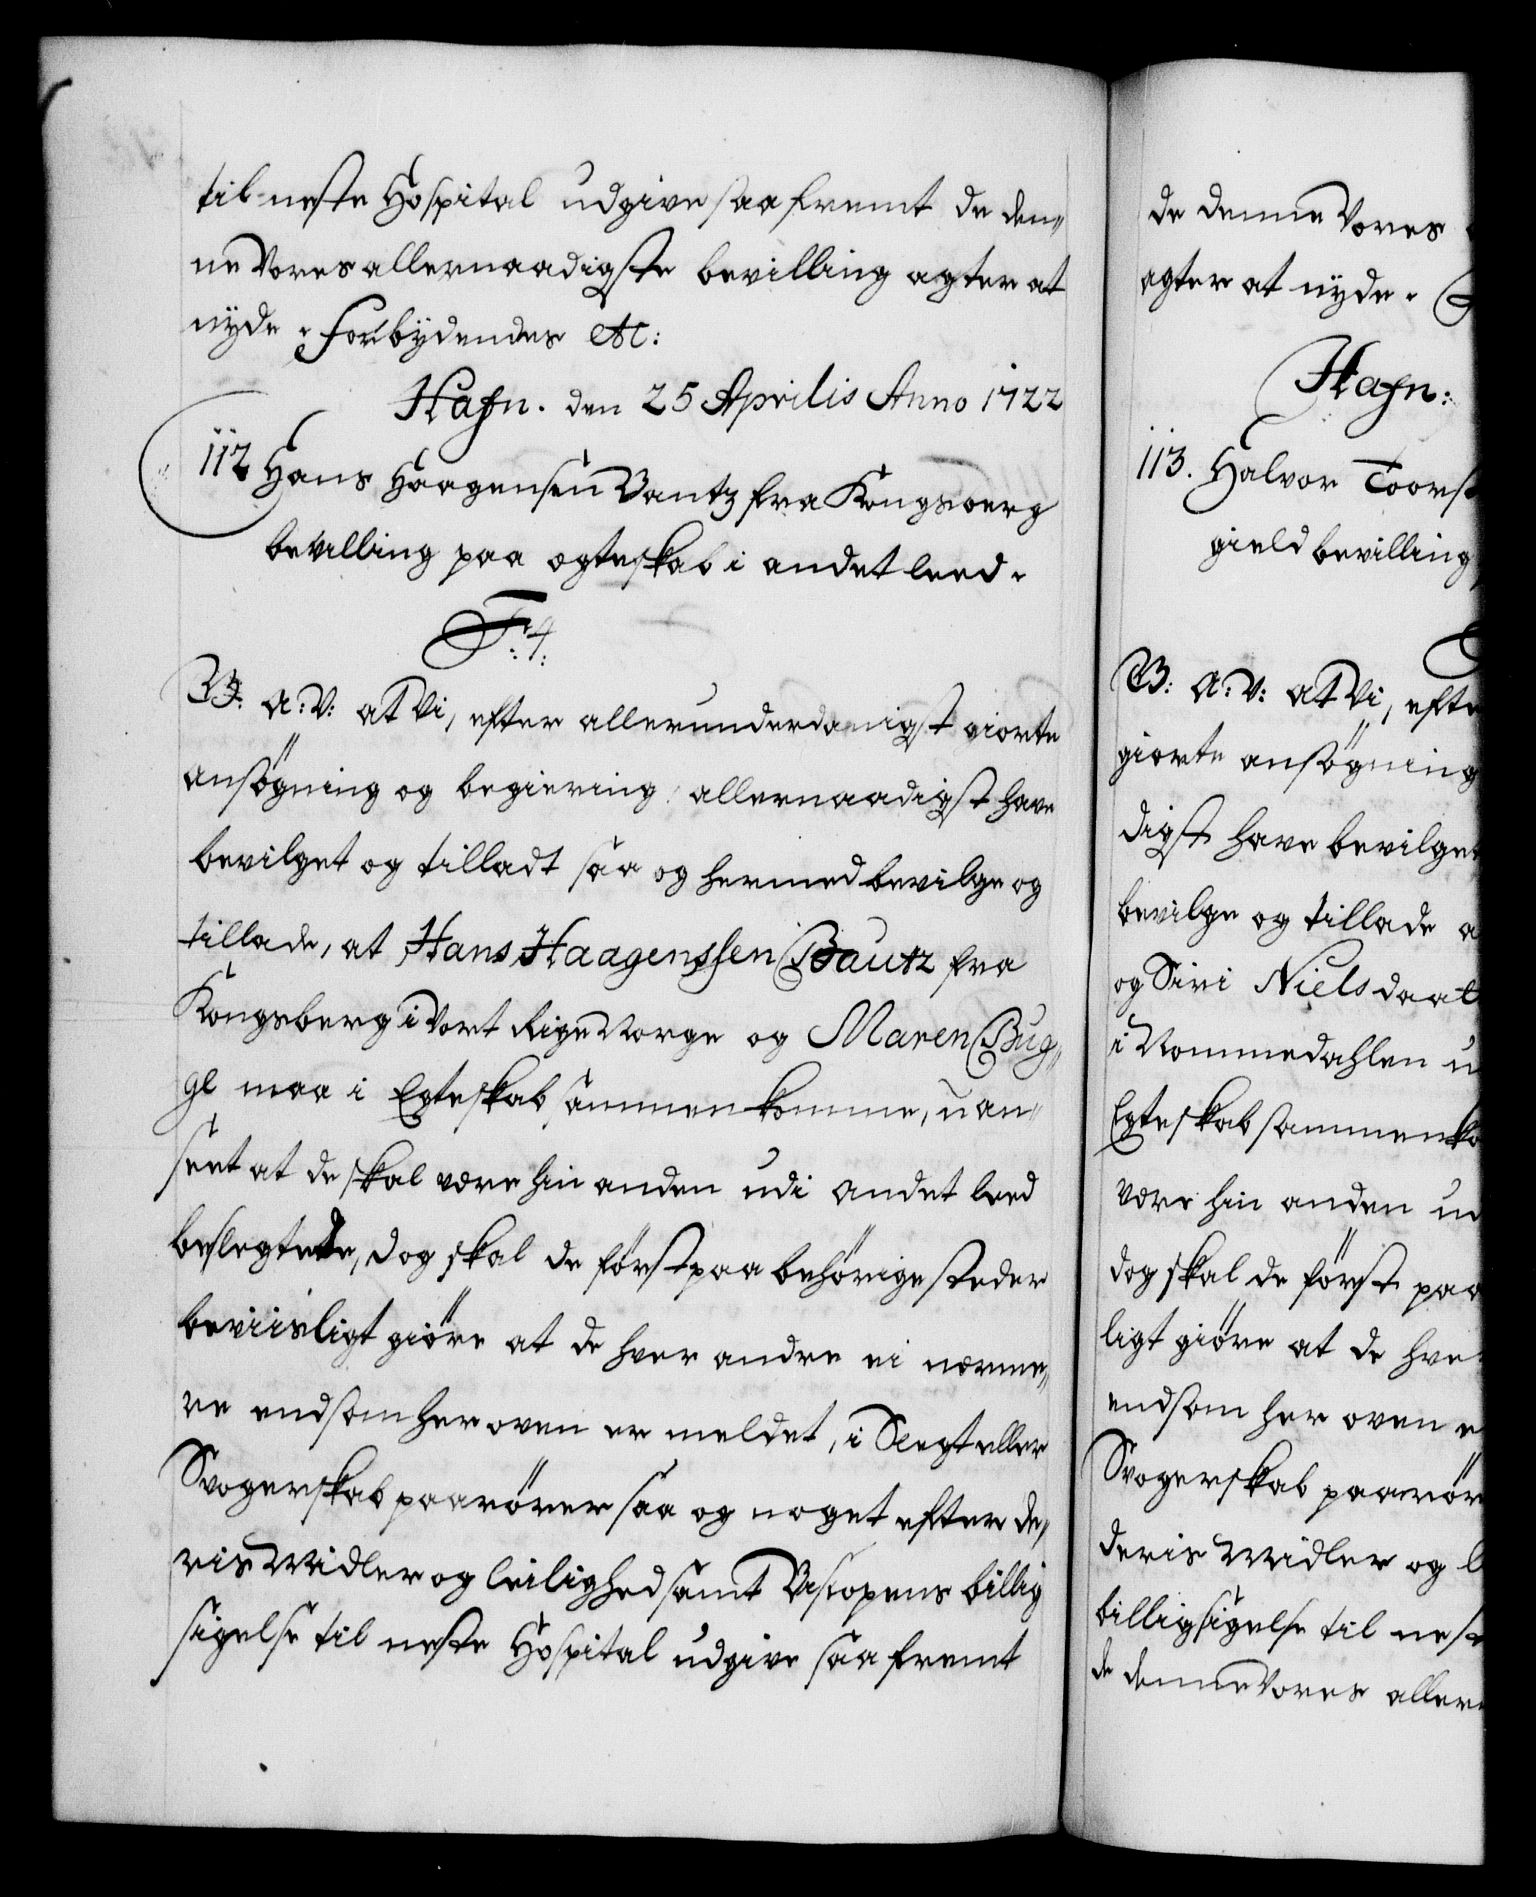 til neste Hospital udgive saafremt de den„
ne Vores allernaadigste bevilling agter at
nyde. Forbydendes etc:
Hafn. den 25 Aprilis Anno 1722
112 Hans Haagensen Bautz fra Kongsberg
bevilling paa egteskab i andet leed.
F: 4.
G: A: V: at Vi, efter allerunderdanigst giorte
ansøgning og begiering, allernaadigst have
bevilget og tilladt saa og hermed bevilge og
tillade, at Hans Haagenssen Bautz fra
Kongsberg i Vort Rige Norge og Maren Bug„
ge maa i Egteskab sammenkomme, uan„
seet at de skal være hin anden udi andet leed
beslegtede, dog skal de først paa behørige steder
beviisligt giøre at de hver andre ei nærme„
re end som her oven er meldet, i Slegt eller
Svogerskab paarører saa og noget efter de„
ris Midler og leilighed samt Biscopens billig
sigelse til neste Hospital udgive saafremt
de denne Vores
agter at nyde.
Hafn:
113. Halvor Toorst
gield bevilling
G: A: V: at Vi, efte
giorte ansøgning
digst have bevilget
bevilge og tillade a
og Siri Nielsdaat
i Nommedahlen u
Egteskab sammenko
være hin anden ud
dog skal de først paa
ligt giøre at de hver
endsom her oven e
Svogerskab paarør
deris Midler og l
billigsigelse til nest
de denne Vores aller